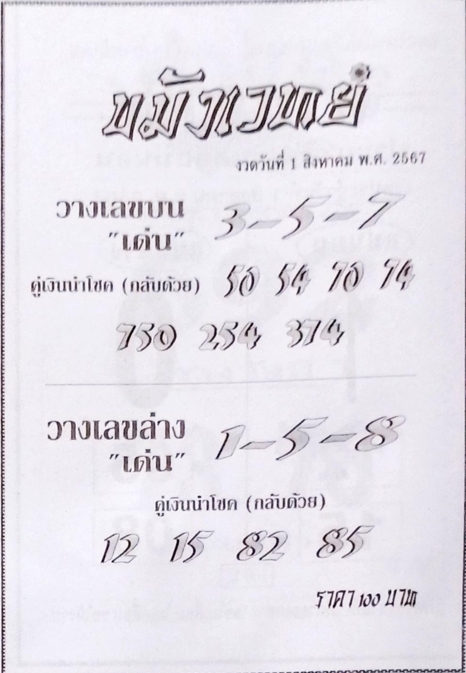 ขมังเวทย์
งวดวันที่ 1 สิงหาคม พ.ศ. 2567
วางเลขบน 3-5-7
"เด่น"
คู่เงินนำโชค (กลับด้วย) 50 54 70 74
750 254 374
วางเลขล่าง 1-5-8
"เด่น"
คู่เงินนำโชค (กลับด้วย)
12 15 82 85
ราคา 100 บาท